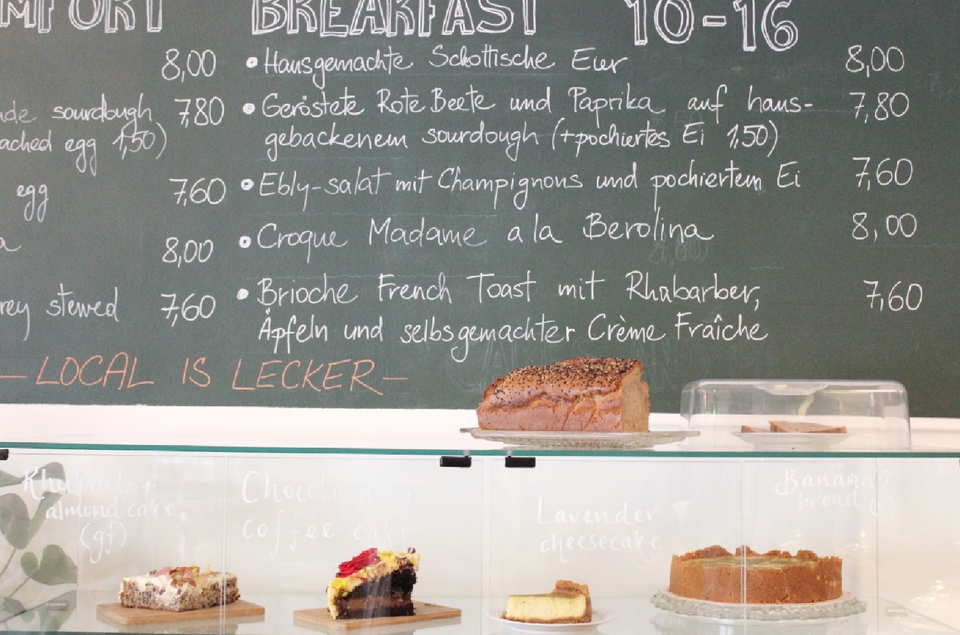 MFORT BREAKFAST 10-16
8,00
ade sourdough 7,80
ached egg 1,50)
egg 7,60
a 8,00
rey stewed 7,60
• Hausgemachte Schottische Eier 8,00
• Geröstete Rote Beete und Paprika auf haus- 7,80
gebackenem sourdough (+pochiertes Ei 1,50)
• Ebly-salat mit Champignons und pochiertem Ei 7,60
• Croque Madame a la Berolina 8,00
• Brioche French Toast mit Rhabarber, 7,60
Äpfeln und selbsgemachter Crème Fraîche
—LOCAL IS LECKER—
almond cake
(gf)
coffee cake
Lavender
cheesecake
Banana
bread